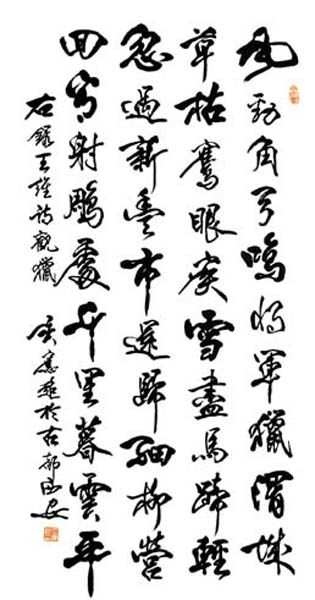 風勁角弓鳴將軍獵渭城
草枯鷹眼疾雪盡馬蹄輕
忽過新豐市還歸細柳營
回看射鵰處千里暮雲平
右錄王維詩觀獵
於古都西安